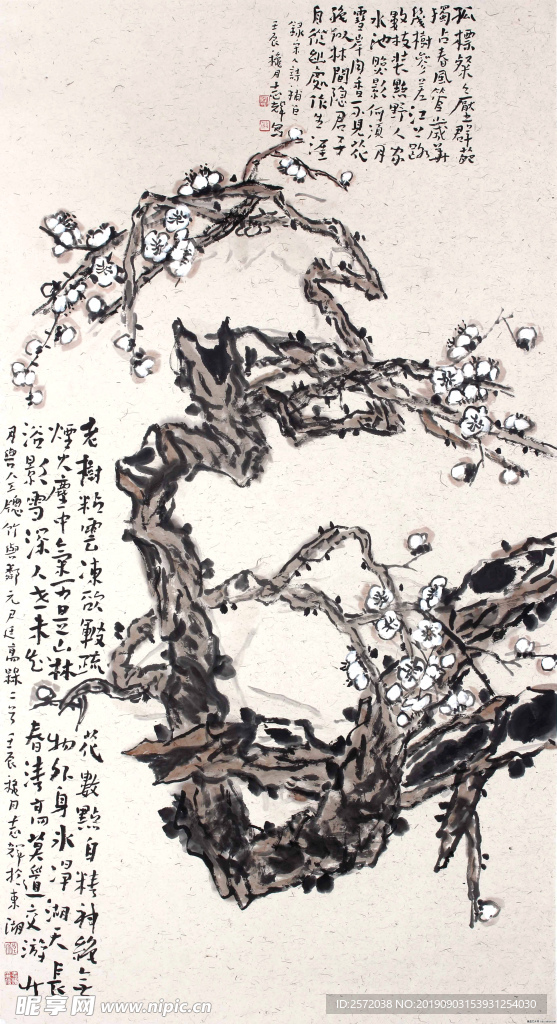 孤標粲々壓群葩
獨占春風管歲華
幾樹參差江上路
數枝裝點野人家
水池照影何須月
雪岸聞香不見花
絕似林間隱君子
自從幽處作生涯
錄宋人詩補白
壬辰穐月志輝寫
老樹粘雲凍欲皸疏花數點自精神絕無
煙火塵中氣乃是山林物外身氷淨湖天長
浴影雪深人世未知春清高莫道交游少
月與竹與鄰元尹廷高二首壬辰穐月志輝於東湖
昵享网 www.nipic.cn
ID:2572038 NO:20190903153931254030